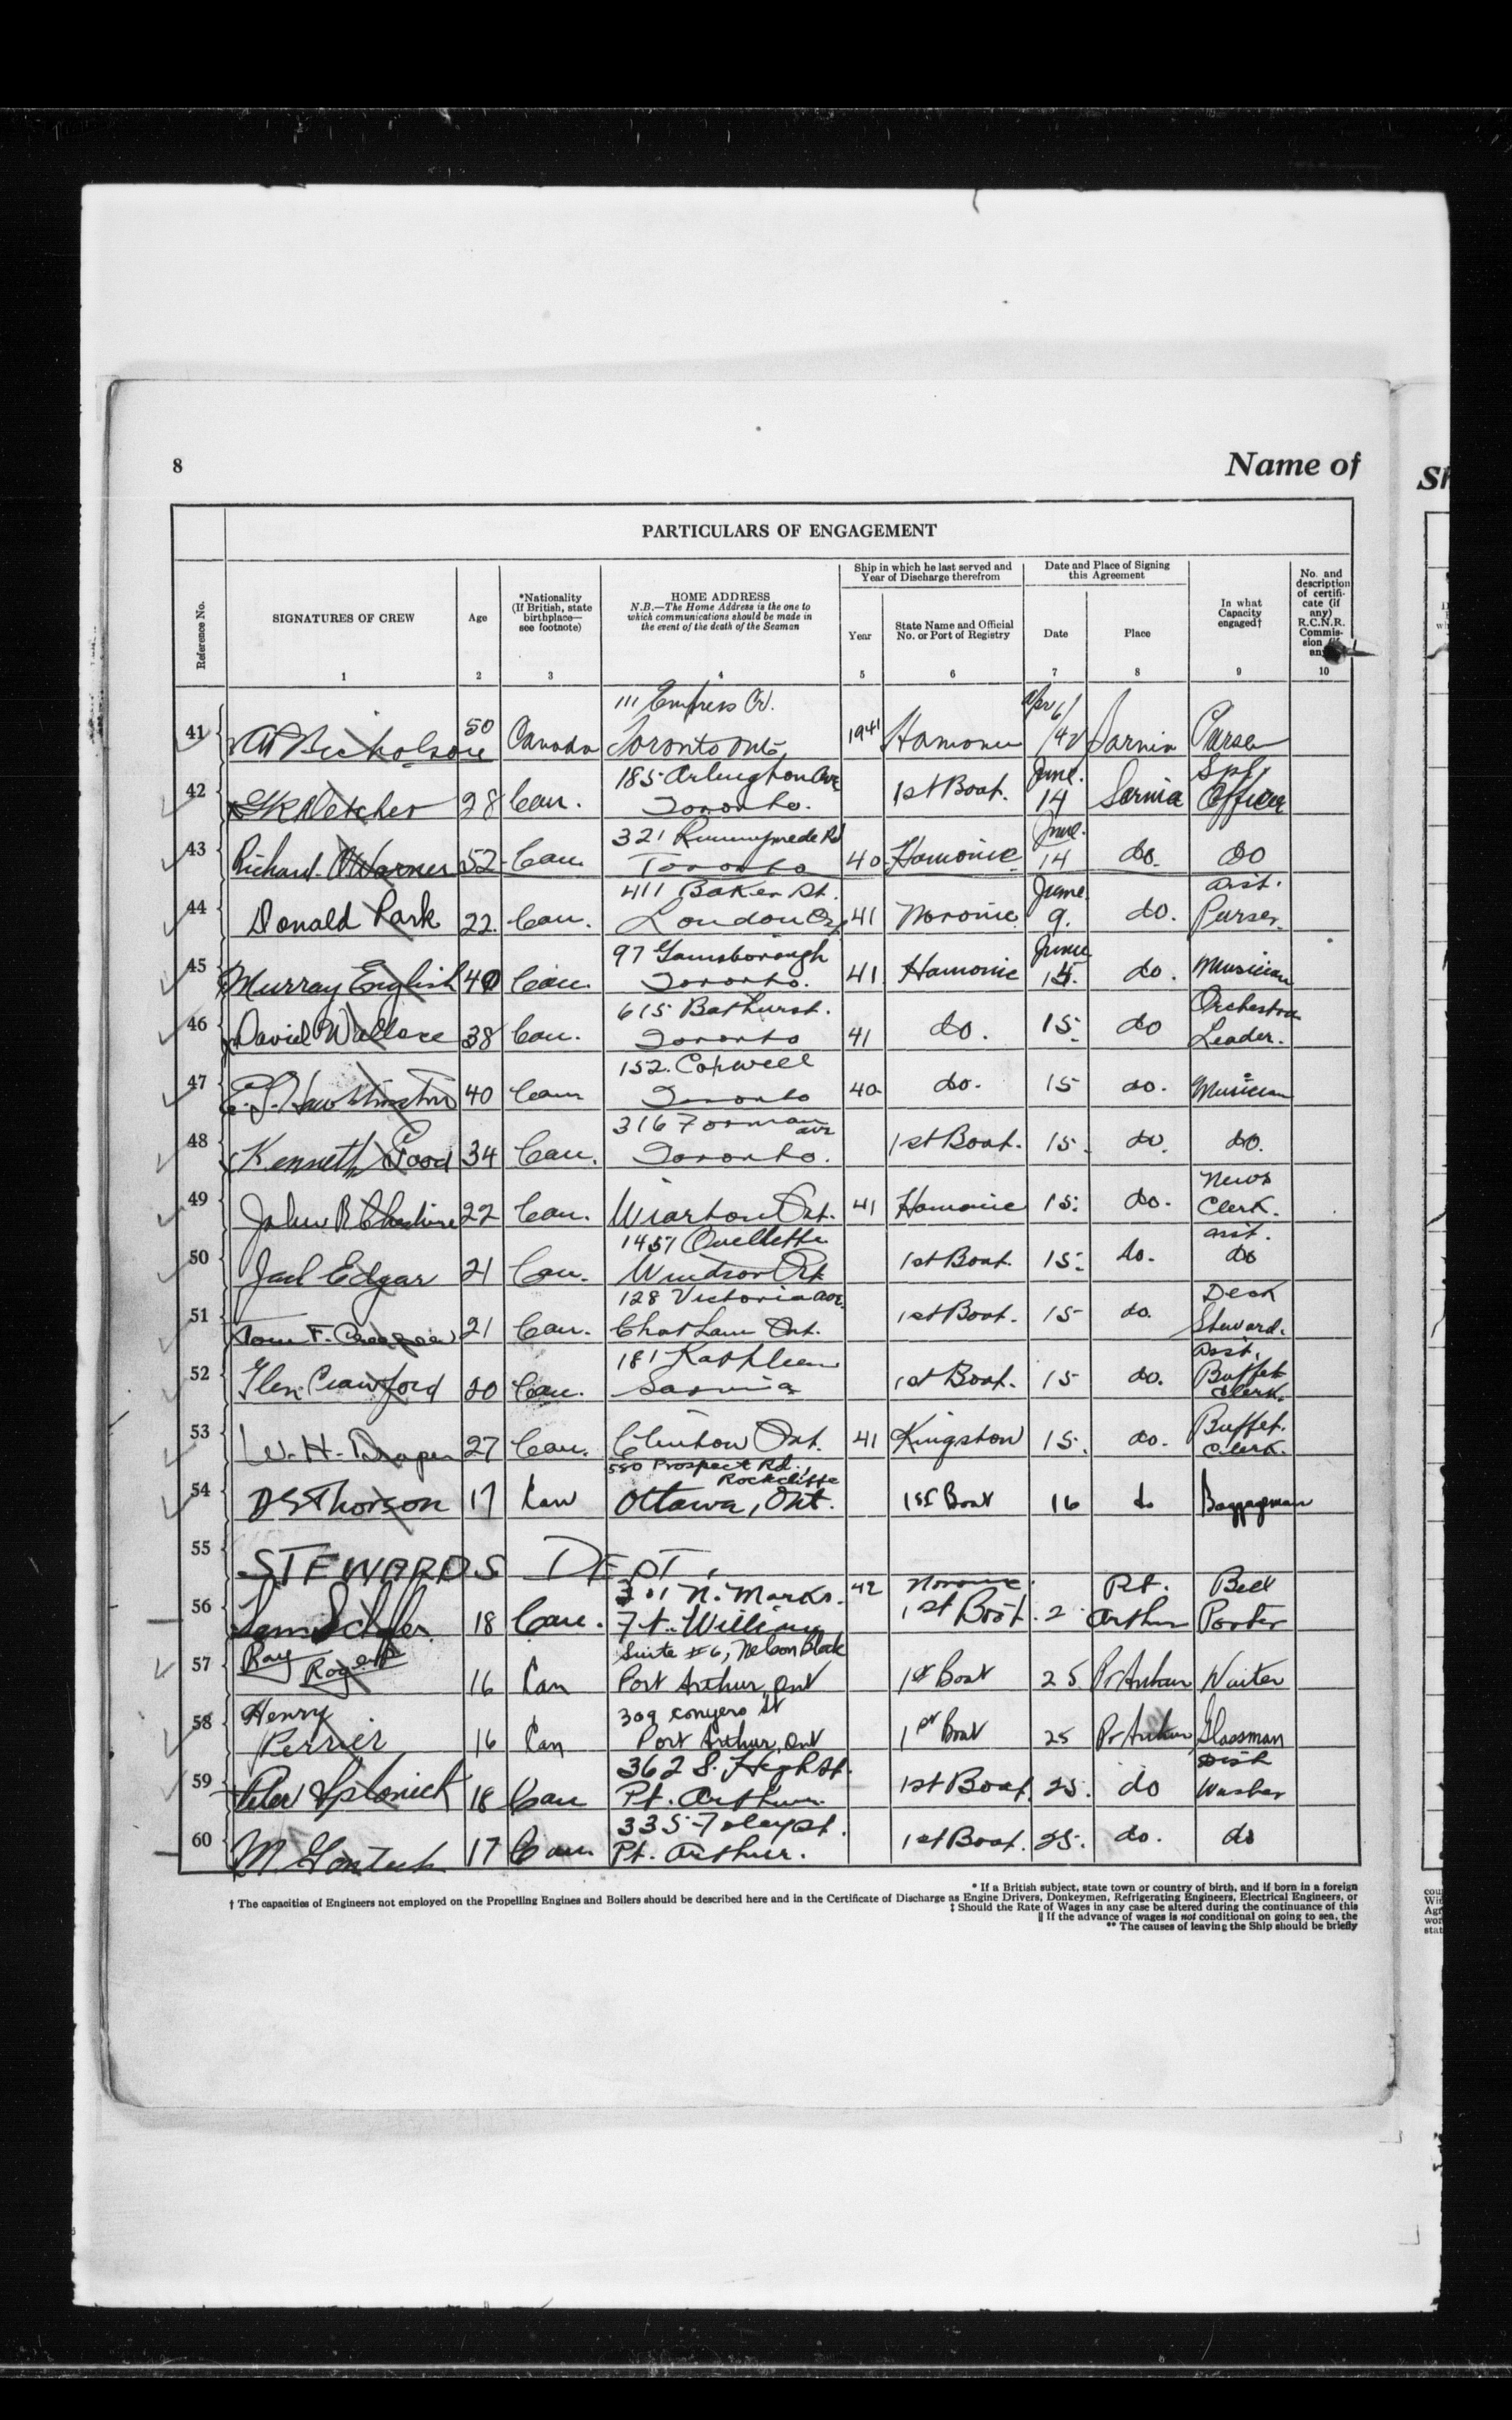 8
Name of
Sh
PARTICULARS OF ENGAGEMENT
Reference No.
SIGNATURES OF CREW
1
Age
2
*Nationality
(If British, state
birthplace—
see footnote)
3
HOME ADDRESS
N.B.—The Home Address is the one to
which communications should be made in
the event of the death of the Seaman
4
Ship in which he last served and
Year of Discharge therefrom
Year
5
State Name and Official
No. or Port of Registry
6
Date and Place of Signing
this Agreement
Date
7
Place
8
In what
Capacity
engaged†
9
No. and
description
of certifi-
cate (if
any)
R.C.N.R.
Commis-
sion
10
111 Empress Cr.
41 Nicholson 50 Canada Toronto Ont. 1941 Hamonic Apr 6/42 Sarnia Purser
185 Arlington Ave
42 28 Can. Toronto. 1st Boat. June 14 Sarnia Spl. Officer
321 Runnymede Rd
43 Richard Warner 52 Can. Toronto 40 Hamonic June. 14 do. do
411 Baker St.
44 Donald Park 22 Can. London Ont 41 Noronic June 9. do. Asst. Purser.
97 Gainsborough
45 Murray English 40 Can. Toronto. 41 Hamonic June 15. do. Musician
615 Bathurst.
46 David Wallace 38 Can. Toronto 41 do. 15. do Orchestra Leader.
152. Coxwell
47 40 Can Toronto 40 do. 15 do. Musician
316
48 Kenneth Good 34 Can. Toronto. 1st Boat. 15. do. do.
49 John R Cheshire 22 Can. Wiarton Ont. 41 Hamonic 15. do. News Clerk.
1457 Ouellette
50 Jack Edgar 21 Can. Windsor Ont 1st Boat. 15. do. asst. do
128 Victoria Ave.
51 Tom F. 21 Can. Chatham Ont. 1st Boat. 15 do. Deck Steward.
181 Kathleen
52 Glen Crawford 20 Can. Sarnia 1st Boat. 15 do. Asst. Buffet Clerk.
53 W. H. Draper 27 Can. Clinton Ont. 41 Kingston 15. do. Buffet. Clerk.
550 Prospect Rd., Rockcliffe
54 D S Thorson 17 Can Ottawa, Ont. 1st Boat 16 do Baggageman
55 STEWARDS DEPT.
301 N. Marks.
56 Sam 18 Can. Ft. William 42 Noronic. 1st Boat. 2 Pt. Arthur Bell Porter
Suite #6, Nelson Block
57 Ray Rogers 16 Can Port Arthur, Ont 1st Boat 25 Pt Arthur Waiter
309 Conyers St
58 Henry Perrier 16 Can Port Arthur, Ont 1st Boat 25 Pt Arthur Glassman
362 S. High St.
59 18 Can Pt. Arthur. 1st Boat. 25. do Dish Washer
335 Foley St.
60 M 17 Can Pt. Arthur. 1st Boat. 25. do. do
* If a British subject, state town or country of birth, and if born in a foreign
† The capacities of Engineers not employed on the Propelling Engines and Boilers should be described here and in the Certificate of Discharge as Engine Drivers, Donkeymen, Refrigerating Engineers, Electrical Engineers, or
‡ Should the Rate of Wages in any case be altered during the continuance of this
|| If the advance of wages is not conditional on going to sea, the
** The causes of leaving the Ship should be briefly